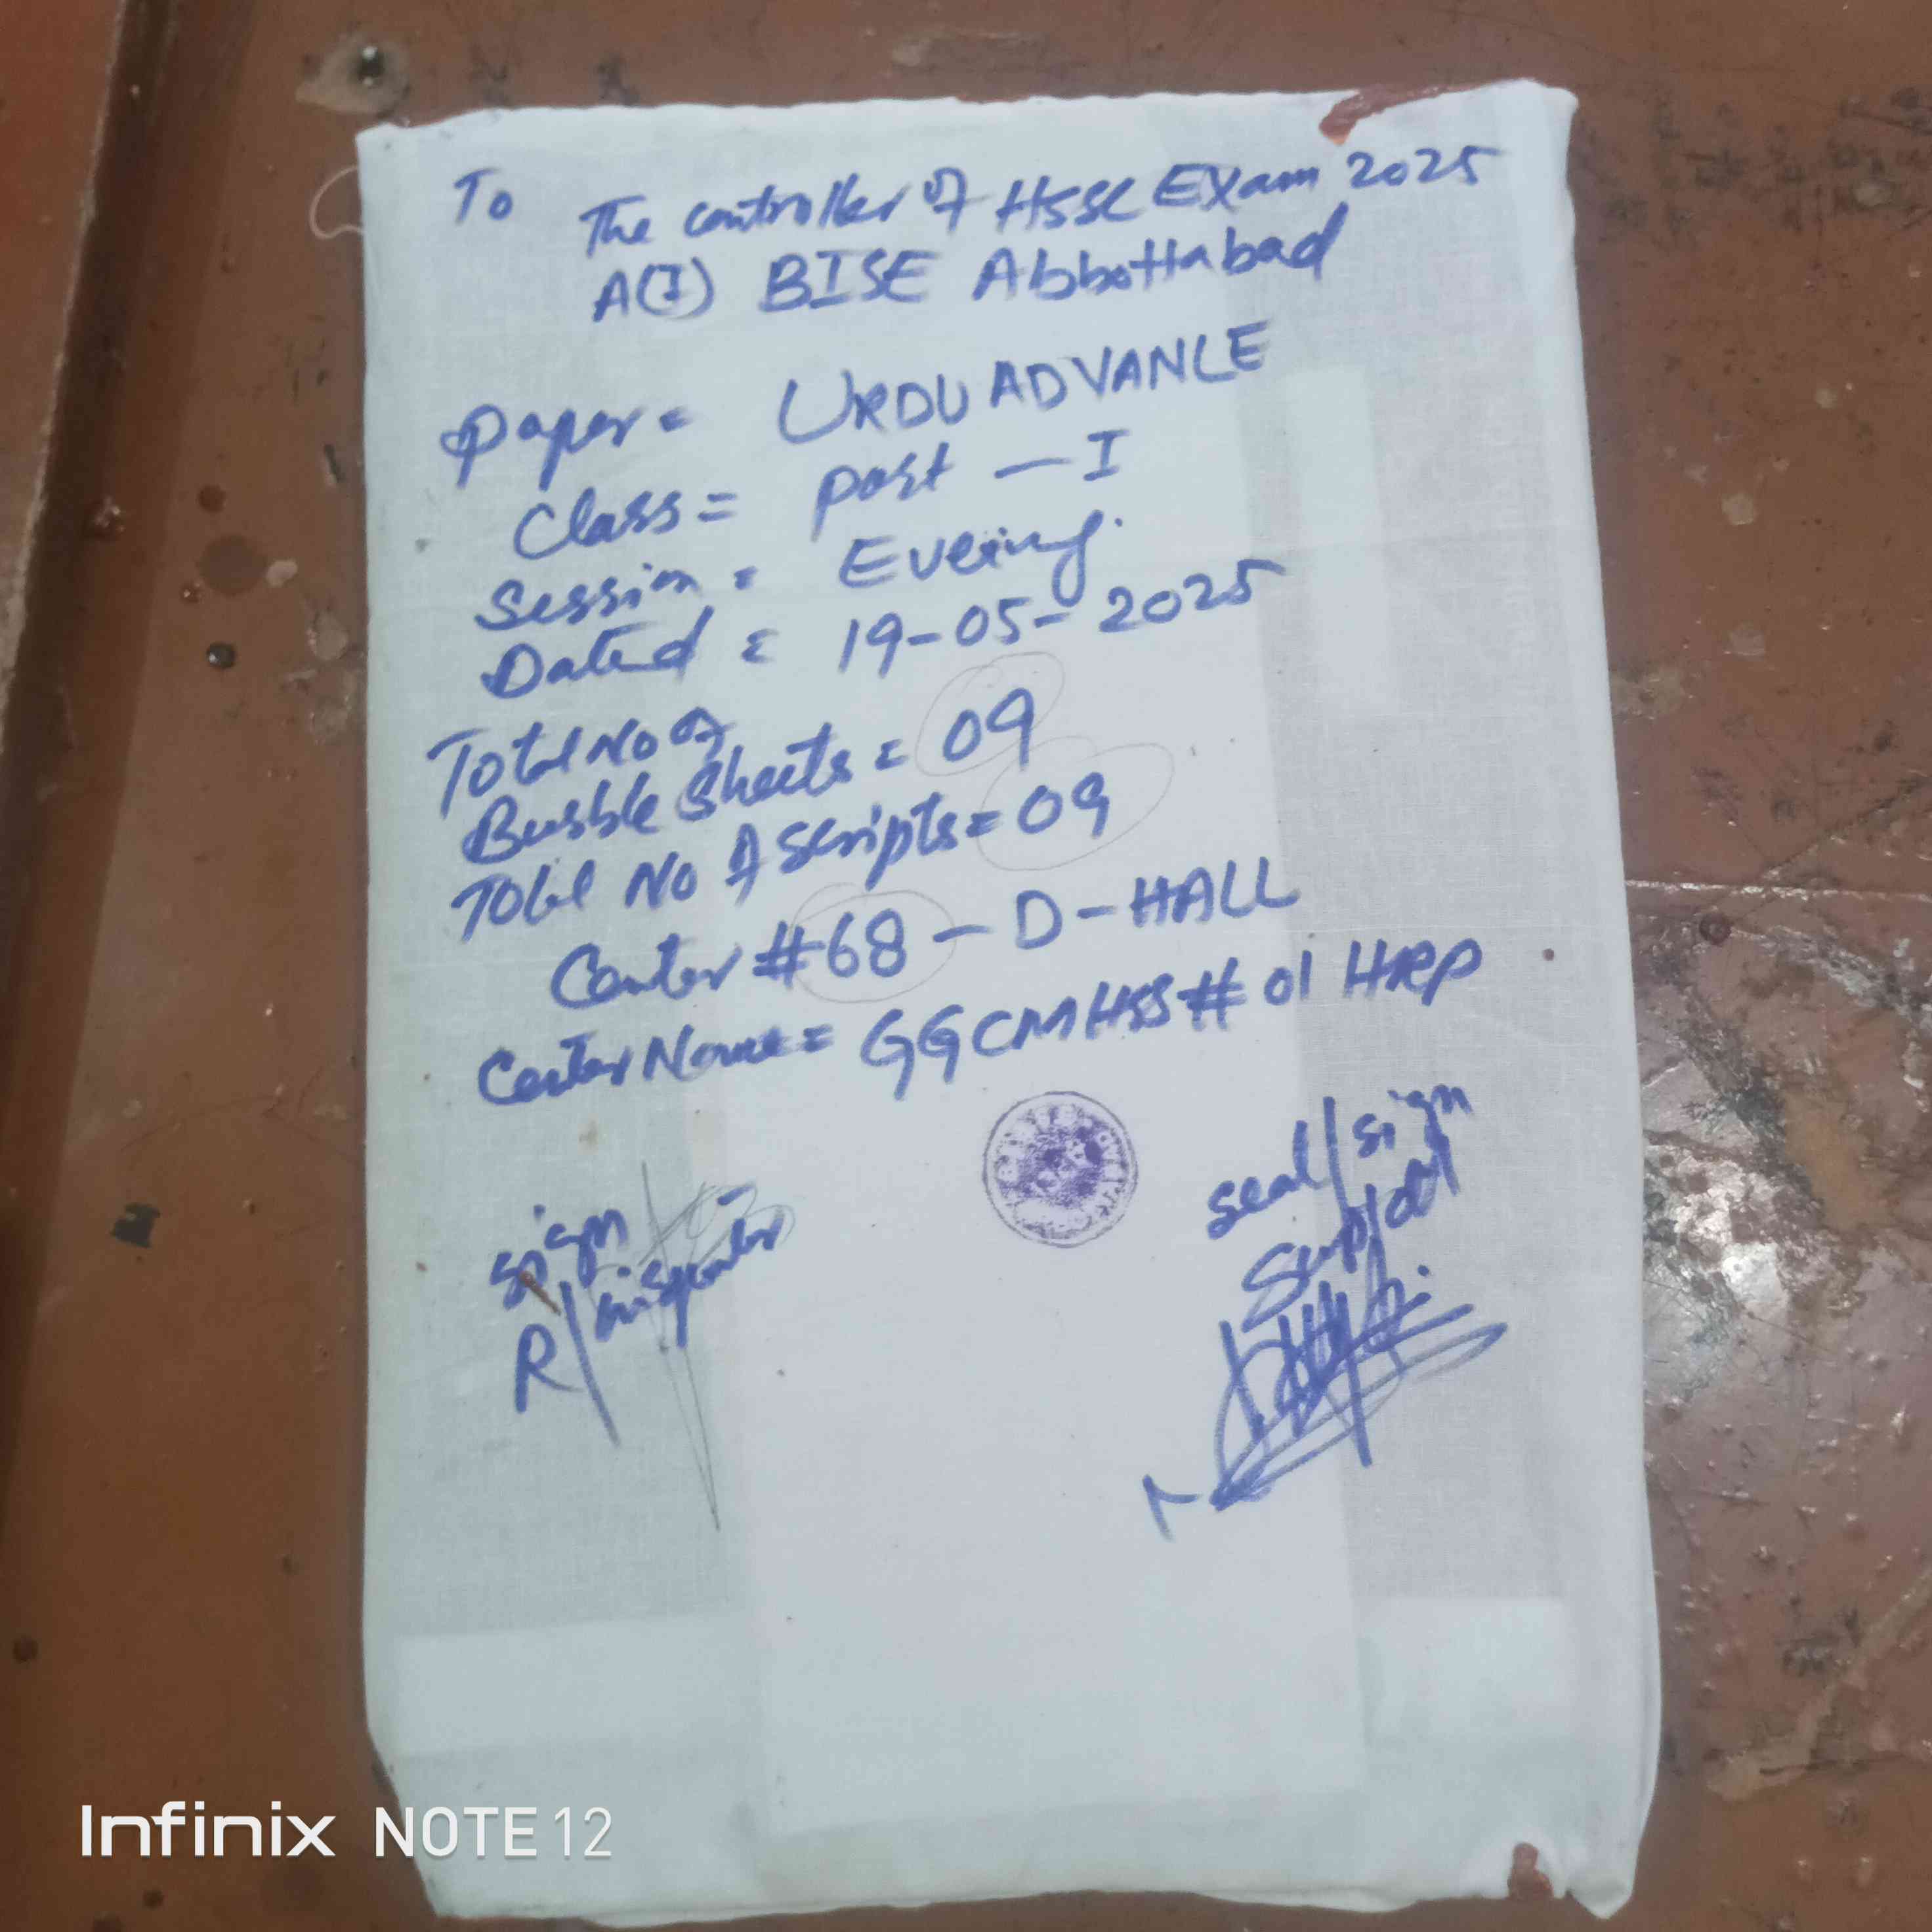 To
The controller of HSSC Exam 2025
A(I) BISE Abbottabad
Paper = URDU ADVANCE
Class = Part - I
Session = Evening
Dated = 19-05-2025
Total No of
Bubble Sheets = 09
Total No of Scripts = 09
Center #68 - D - HALL
Center Name = GGCMHSS # 01 HRP
sign
R/inspector
seal/sign
Supdt
Infinix NOTE 12